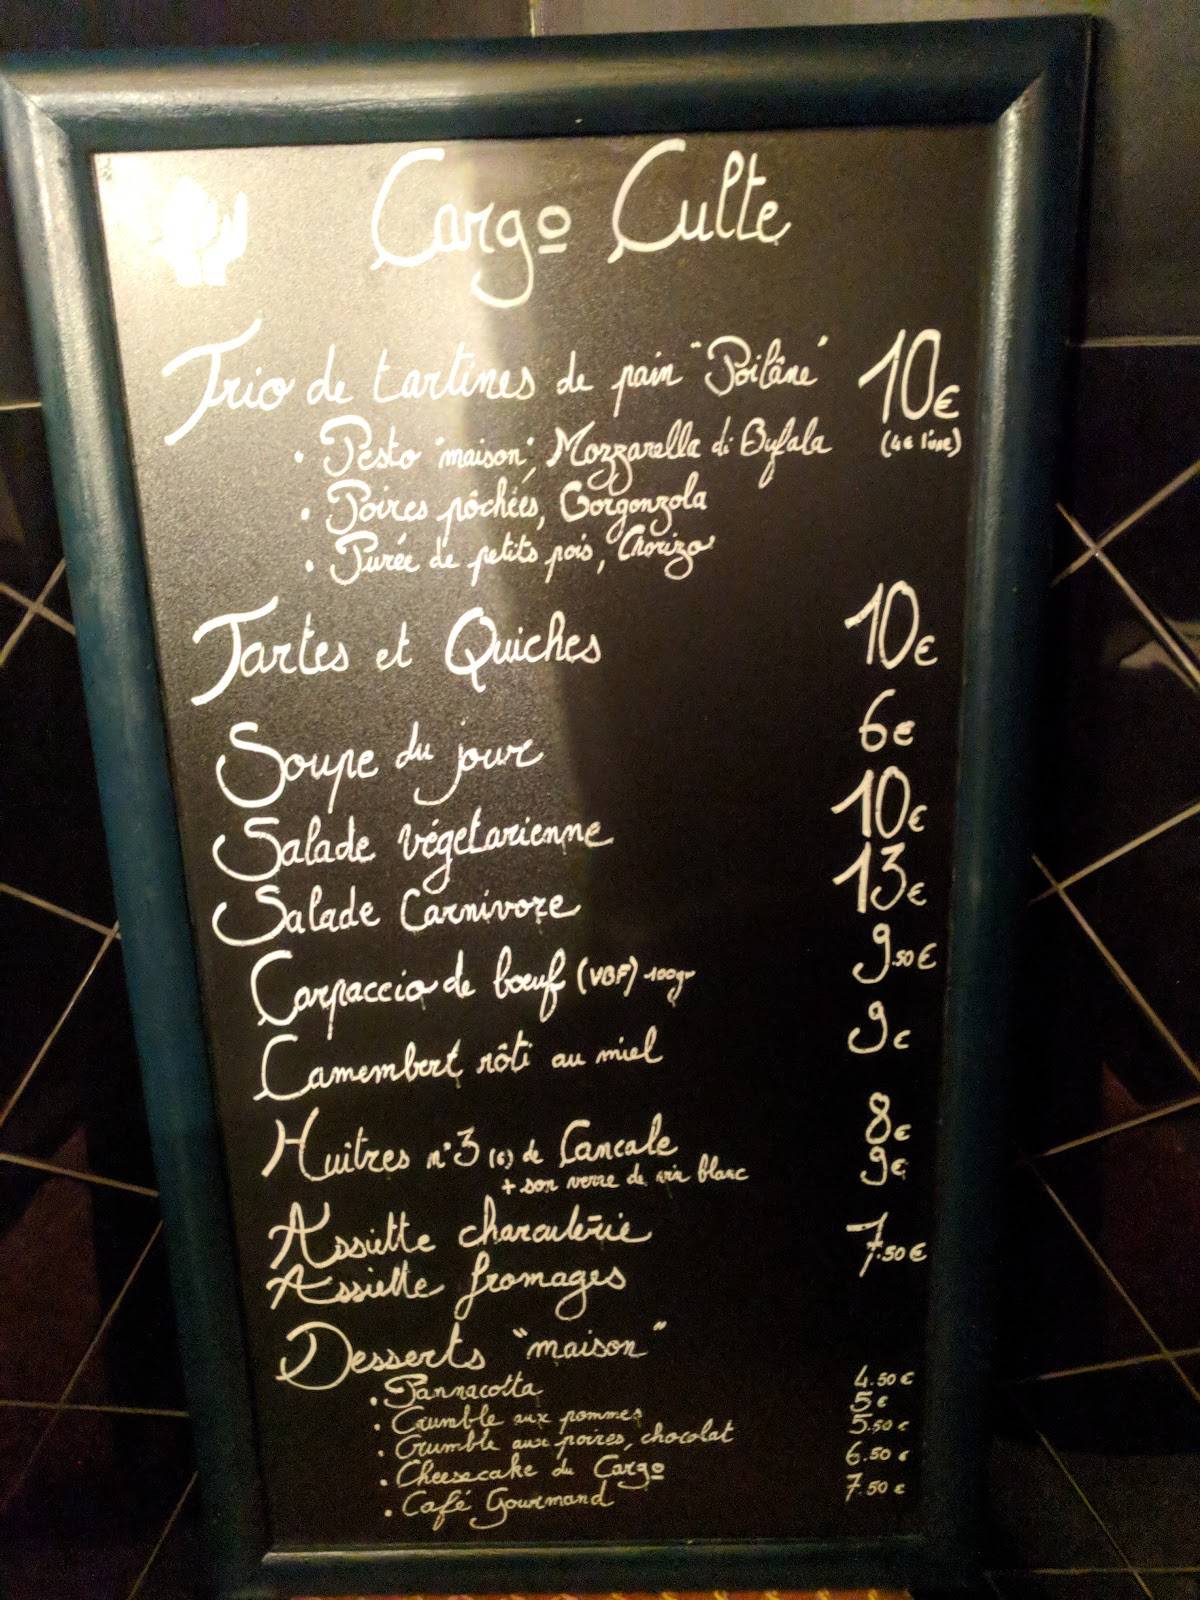 Cargo Culte
Trio de tartines de pain "Poilâne" 10€
• Pesto "maison", Mozzarella di Bufala (4€ l'une)
• Poires pôchées, Gorgonzola
• Purée de petits pois, Chorizo
Tartes et Quiches 10€
Soupe du jour 6€
Salade végetarienne 10€
Salade Carnivore 13€
Carpaccio de bœuf (VBF) 100gr 9.50€
Camembert rôti au miel 9€
Huitres n°3 (6) de Cancale 8€
+ son verre de vin blanc 9€
Assiette charcuterie 7
Assiette fromages 7.50€
Desserts "maison"
• Pannacotta 4.50€
• Crumble aux pommes 5€
• Crumble aux poires, chocolat 5.50€
• Cheesecake du Cargo 6.50€
• Café Gourmand 7.50€